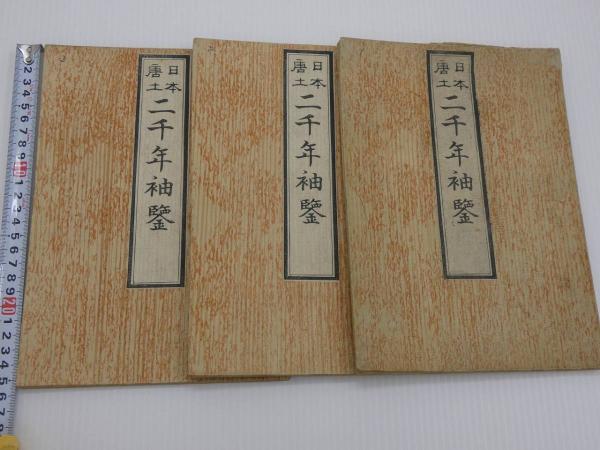 日本
唐土
二千年袖鑒
日本
唐土
二千年袖鑒
日本
唐土
二千年袖鑒
2
3
4
5
6
7
8
9
10
1
2
3
4
5
6
7
8
9
20
1
2
3
4
5